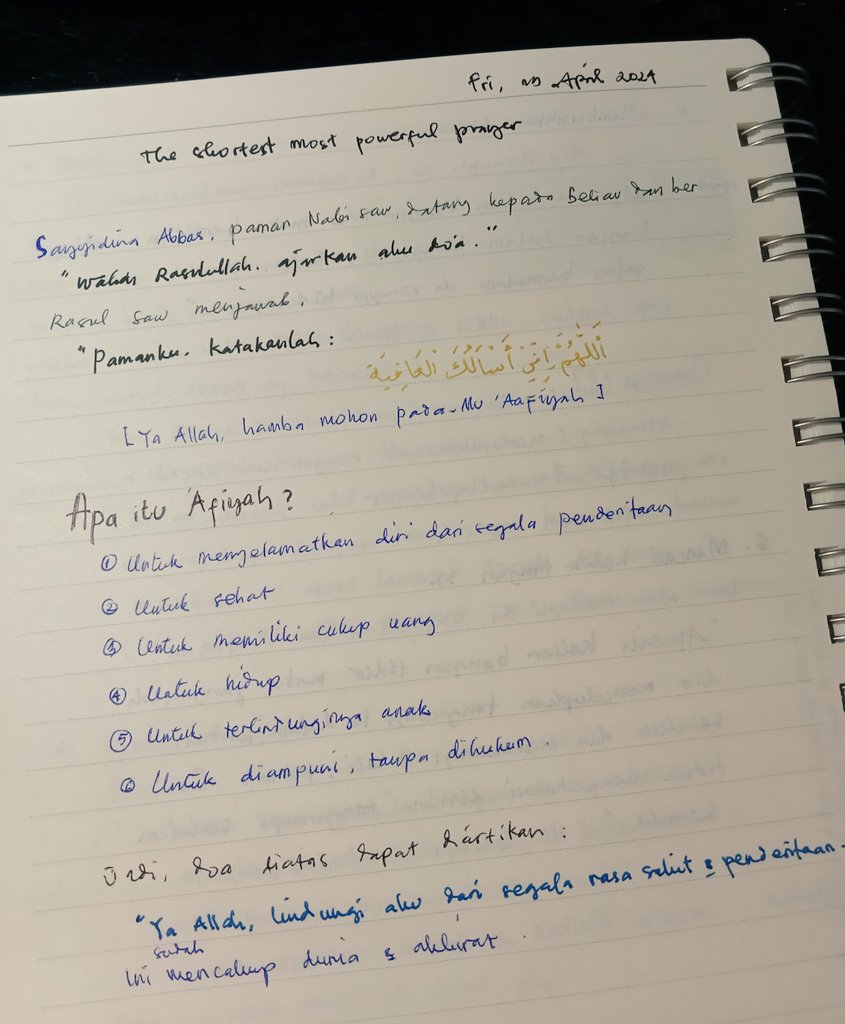 Fri, 05 April 2024
The shortest most powerful prayer
Sayyidina Abbas, paman Nabi saw, datang kepada beliau dan ber
"Wahai Rasulullah. ajarkan aku do'a."
Rasul saw menjawab,
"Pamanku. katakanlah :
اَللَّهُمَّ إِنِّيْ أَسْأَلُكَ الْعَافِيَةَ
[Ya Allah, hamba mohon pada-Mu 'Aafiyah]
Apa itu 'Afiyah?
① Untuk menyelamatkan diri dari segala penderitaan
② Untuk sehat
③ Untuk memiliki cukup uang
④ Untuk hidup
⑤ Untuk terlindunginya anak
⑥ Untuk diampuni, tanpa dihukum.
Jadi, doa diatas dapat diartikan :
"Ya Allah, lindungi aku dari segala rasa sakit & penderitaan.
Ini sudah mencakup dunia & akhirat.